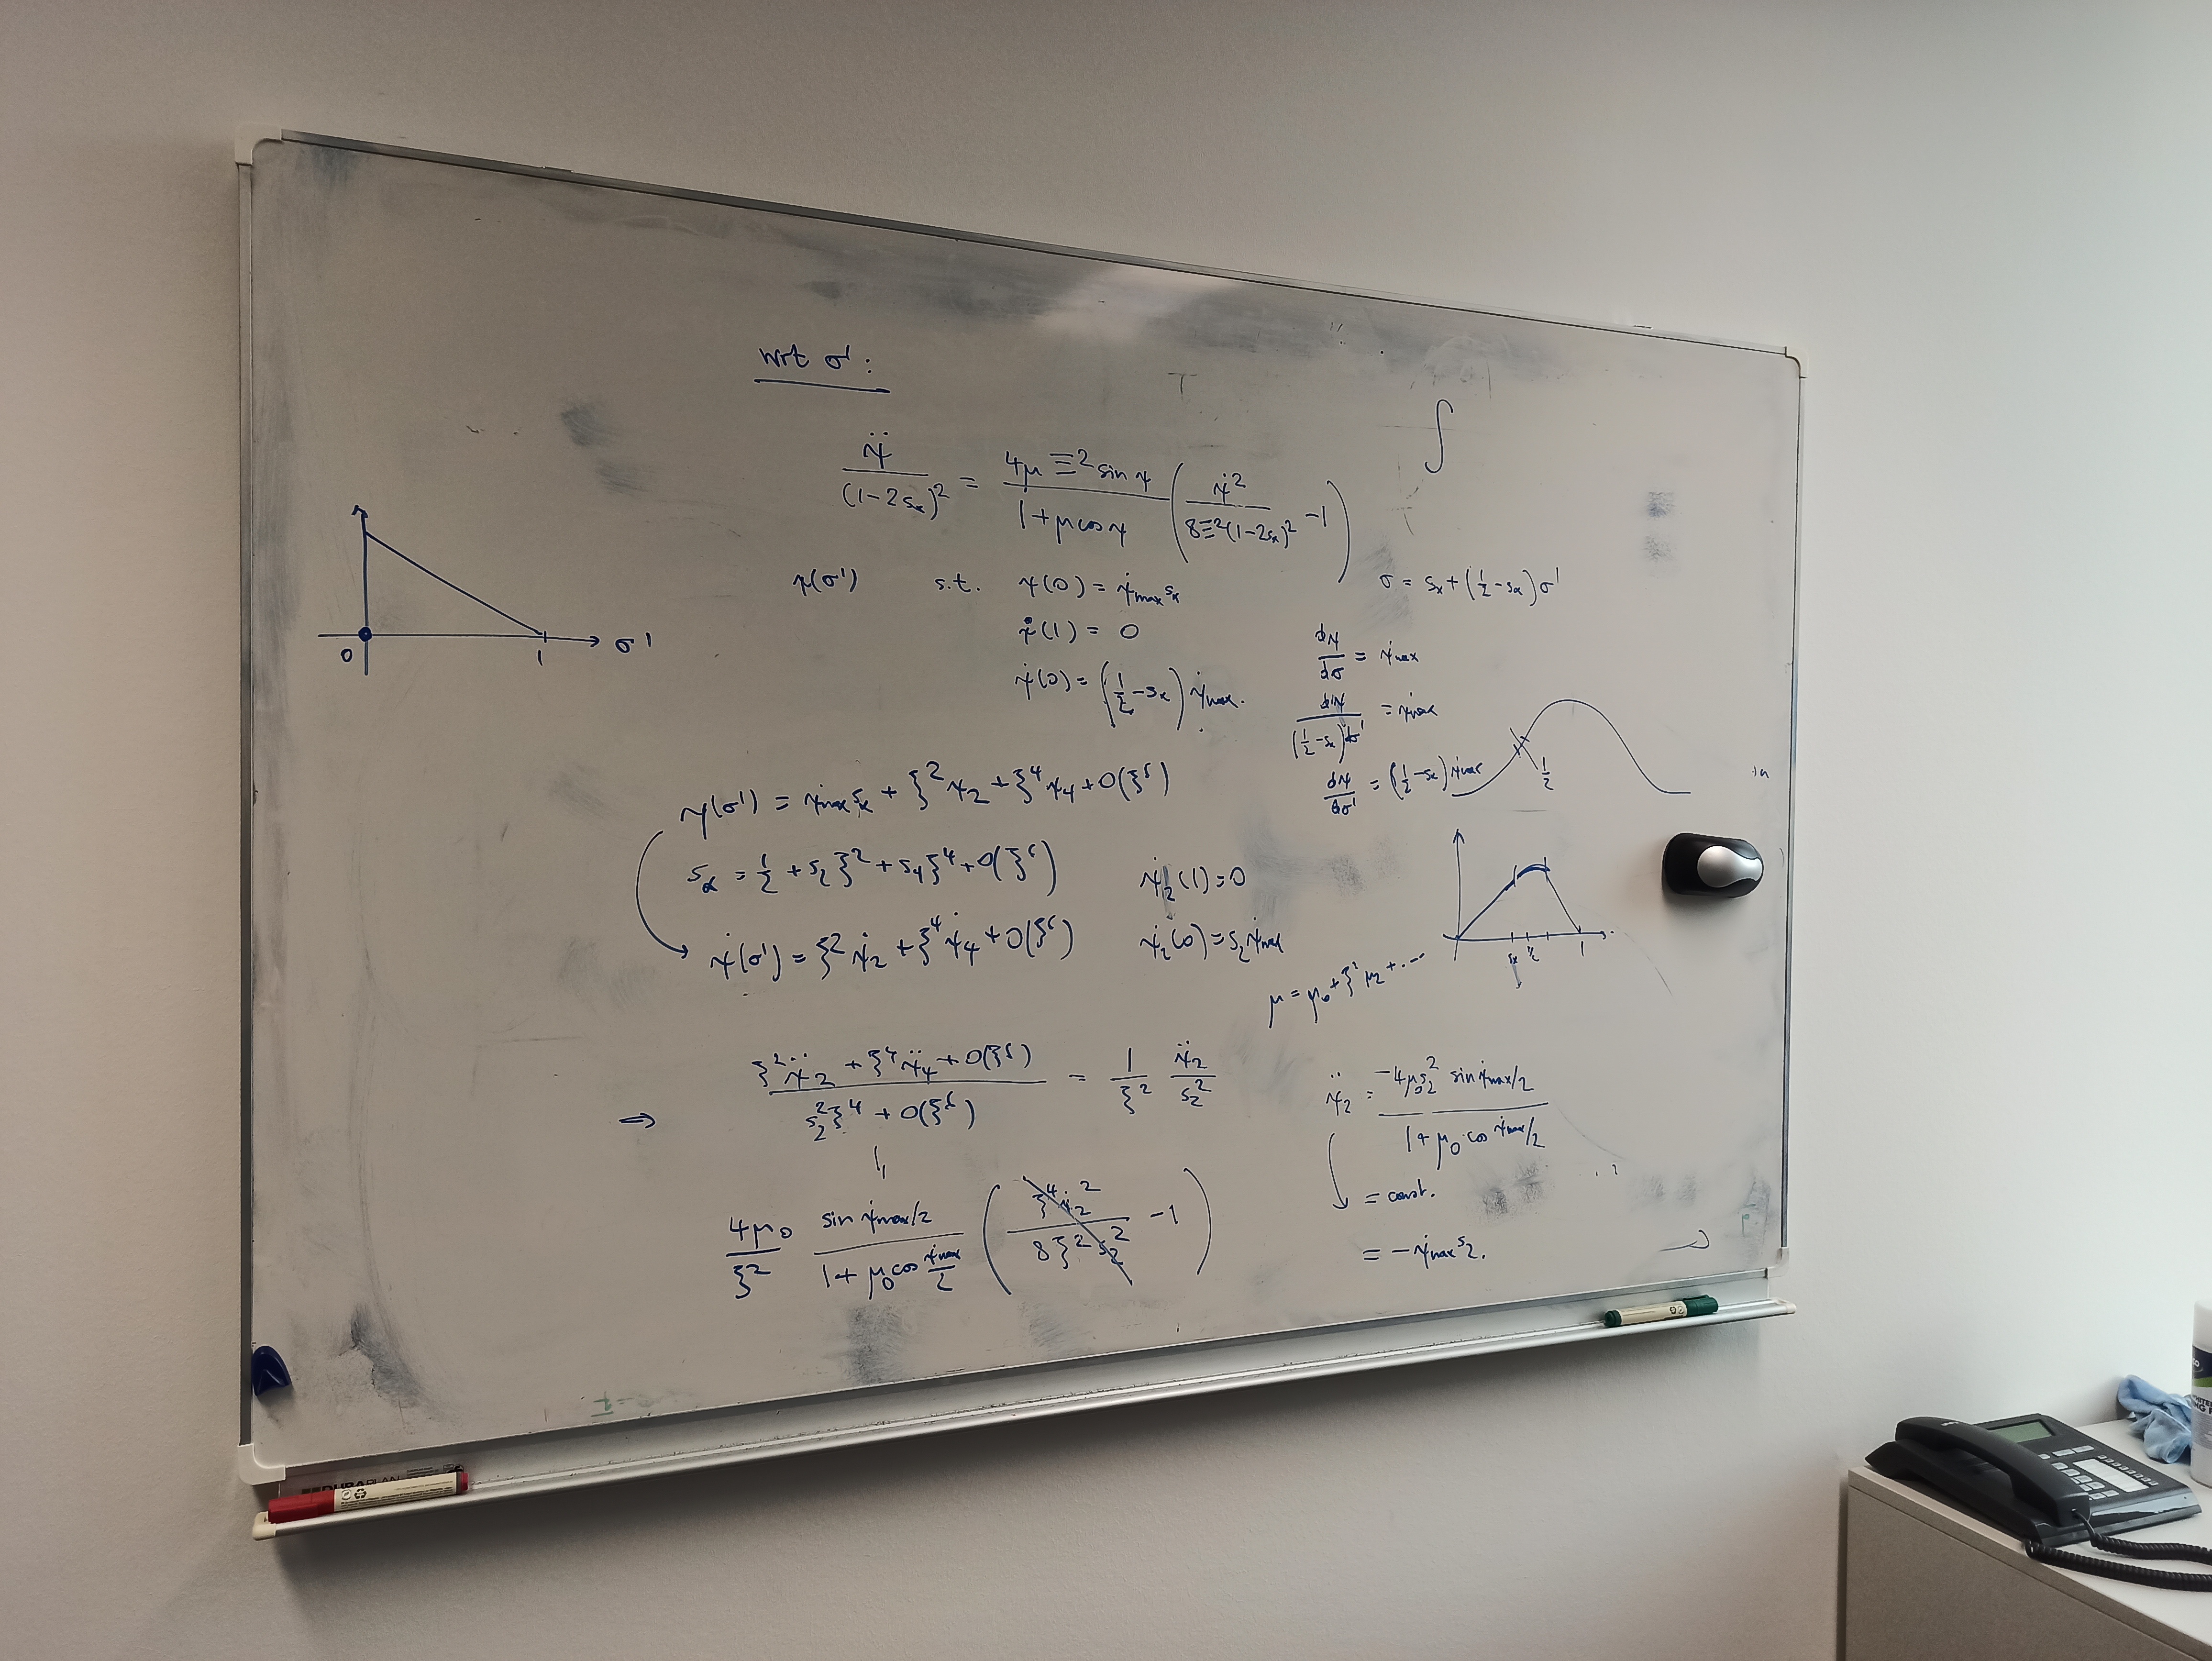 wrt σ':
ψ̈ / (1-2sₓ)² = 4μ Ξ² sin ψ / (1+μ cos ψ) ( ψ̇² / (8Ξ²(1-2sₓ)²) - 1 )
ψ(σ') s.t. ψ(0) = ψ̇max sₓ
ψ̇(1) = 0
ψ̇(0) = (1/2 - sₓ) ψ̇max.
0 1 σ'
∫
σ = sₓ + (1/2 - sₓ) σ'
dψ/dσ = ψ̇max
dψ / ((1/2 - sₓ) dσ') = ψ̇max
dψ/dσ' = (1/2 - sₓ) ψ̇max
1/2
ψ(σ') = ψ̇max sₓ + ξ² ψ₂ + ξ⁴ ψ₄ + O(ξ⁶)
sₓ = 1/2 + s₂ ξ² + s₄ ξ⁴ + O(ξ⁶)
ψ̇₂(1) = 0
ψ̇(σ') = ξ² ψ̇₂ + ξ⁴ ψ̇₄ + O(ξ⁶)
ψ̇₂(0) = s₂ ψ̇max
sₓ 1/2 1
μ = μ₀ + ξ² μ₂ + ...
⇒ (ξ² ψ̈₂ + ξ⁴ ψ̈₄ + O(ξ⁶)) / (s₂² ξ⁴ + O(ξ⁶)) = 1/ξ² ψ̈₂/s₂²
4μ₀/ξ² sin ψ̇max/2 / (1 + μ₀ cos ψ̇max/2) ( ξ⁴ ψ̇₂² / (8 ξ² s₂²) - 1 )
ψ̈₂ = -4μ₀ s₂² sin ψ̇max/2 / (1 + μ₀ cos ψ̇max/2)
= const.
= - ψ̇max s₂.